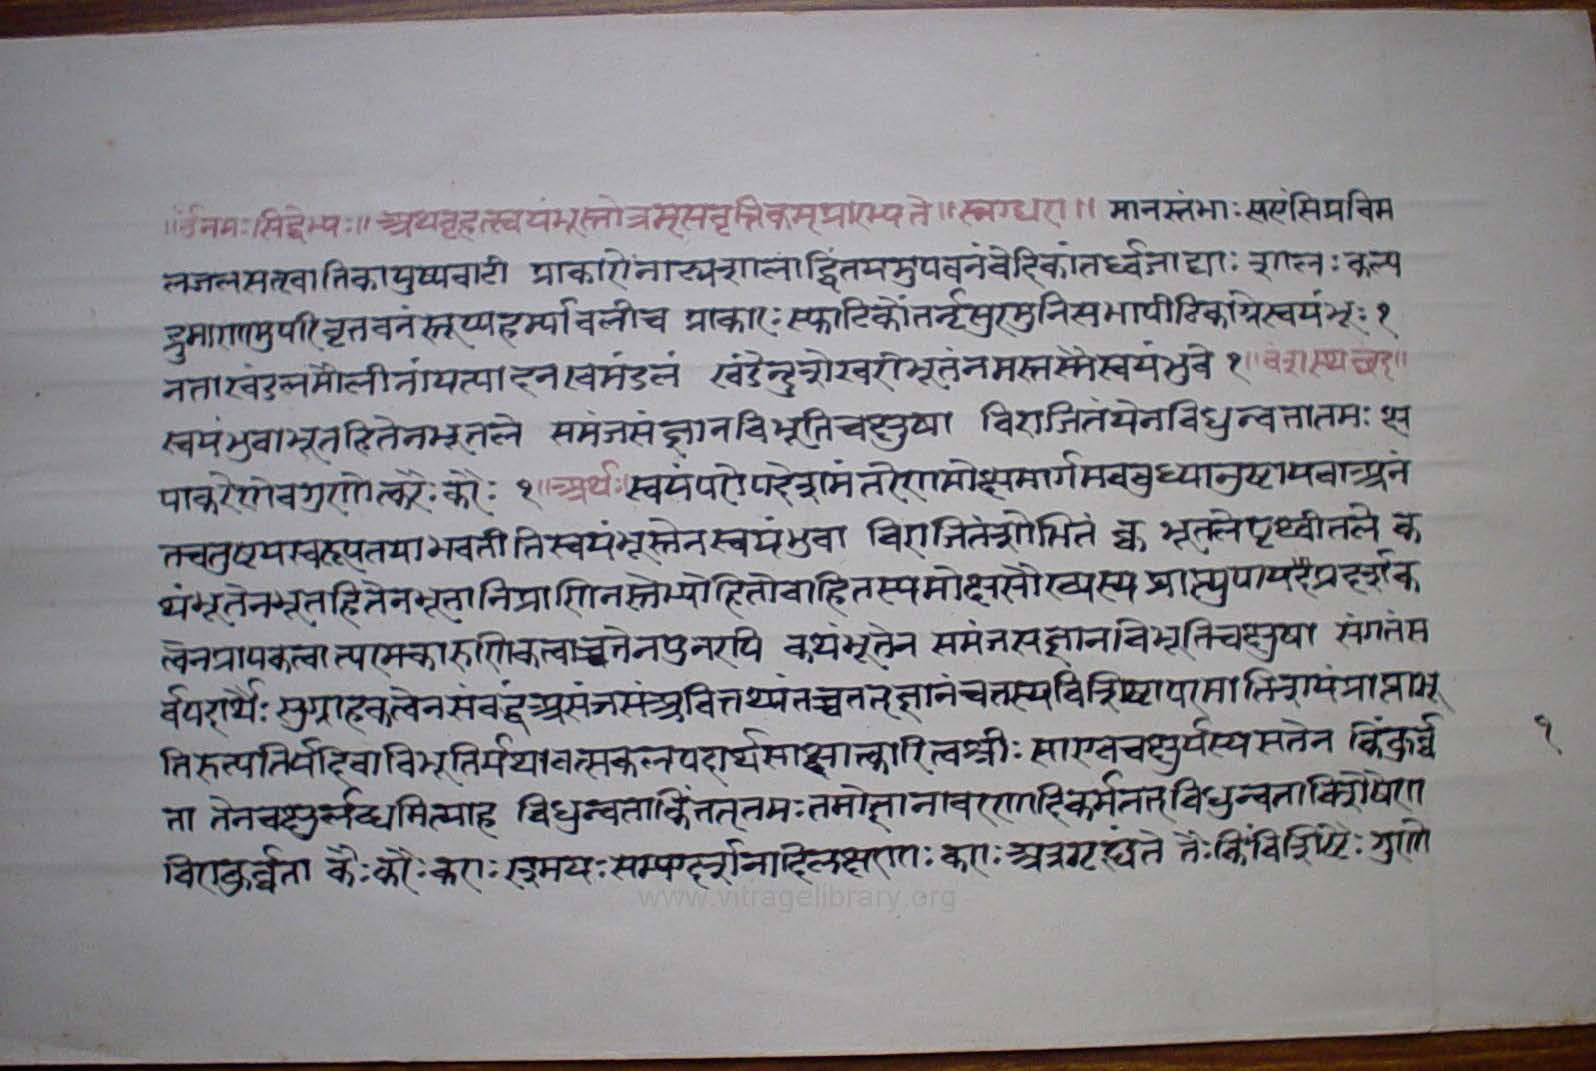 ॥ॐनमःसिद्धेभ्यः॥ अथबृहत्स्वयंभूस्तोत्रम्सवृत्तिकम्प्रारभ्यते॥स्नग्धरा॥ मानस्तंभाःसरांसिप्रविम
लजलसत्खातिकापुष्पवाटी प्राकारोनाट्यशालाद्वितयमुपवनंवेदिकांतर्ध्वजाद्याः शालः कल्प
द्रुमाणामुपरिवृतवनंस्तूप्यहर्म्यावलीच प्राकारः स्फाटिकोंतर्नृसुरमुनिसभापीठिकाग्रेस्वयंभूः १
नताखंडलमौलीनांयत्पादनखमंडलं खंडेन्दुशेखरीभूतंनमस्तस्मैस्वयंभुवे १॥वंशस्थछंद॥
स्वयंभुवाभूतहितेनभूतले समंजसंज्ञानविभूतिचक्षुषा विराजितंयेनविधुन्वतातमः क्ष
पाकरेणेवगुणोत्करैः करैः १॥अर्थः॥स्वयंपरोपदेशमंतरेणमोक्षमार्गमवबुध्यानुष्टायवाअनं
तचतुष्टयस्वरूपतयाभवतीतिस्वयंभूस्तेनस्वयंभुवा विराजितंशोभितं क्व भूतलेपृथ्वीतले क
थंभूतेनभूतहितेनभूतानिप्राणिनस्तेभ्योहितोवाहितस्यमोक्षसौख्यस्य प्राप्त्युपायप्रदर्शक
त्वेनप्रापकत्वात्परमकारुणिकत्वाच्चतेनपुनरपि कथंभूतेन समंजसज्ञानविभूतिचक्षुषा संगतंस
र्वपदार्थैः सुग्राहकत्वेनसंबद्धंअसंजसंअवितथ्यंतच्चतत्ज्ञानंचतस्यविशिष्टापरमातिशयंप्राप्ताभू
तिरुत्पतिर्यदिवाविभूतिर्यथावत्सकलपदार्थसाक्षात्कारित्वश्रीः साएवचक्षुर्यस्यसतेन किंकुर्व्व १
ता तेनचक्षुर्लब्धमित्याह विधुन्वताकिंतत्तमः तमोज्ञानावरणादिकर्मतत्विधुन्वताविशेषेण
विराकुर्व्वता कैः करैः कराः रश्मयः सम्यग्दर्शनादिलक्षणाः कराः अत्रगृह्यंते तैः किंविशिष्टैः गुणो
www.vitragelibrary.org